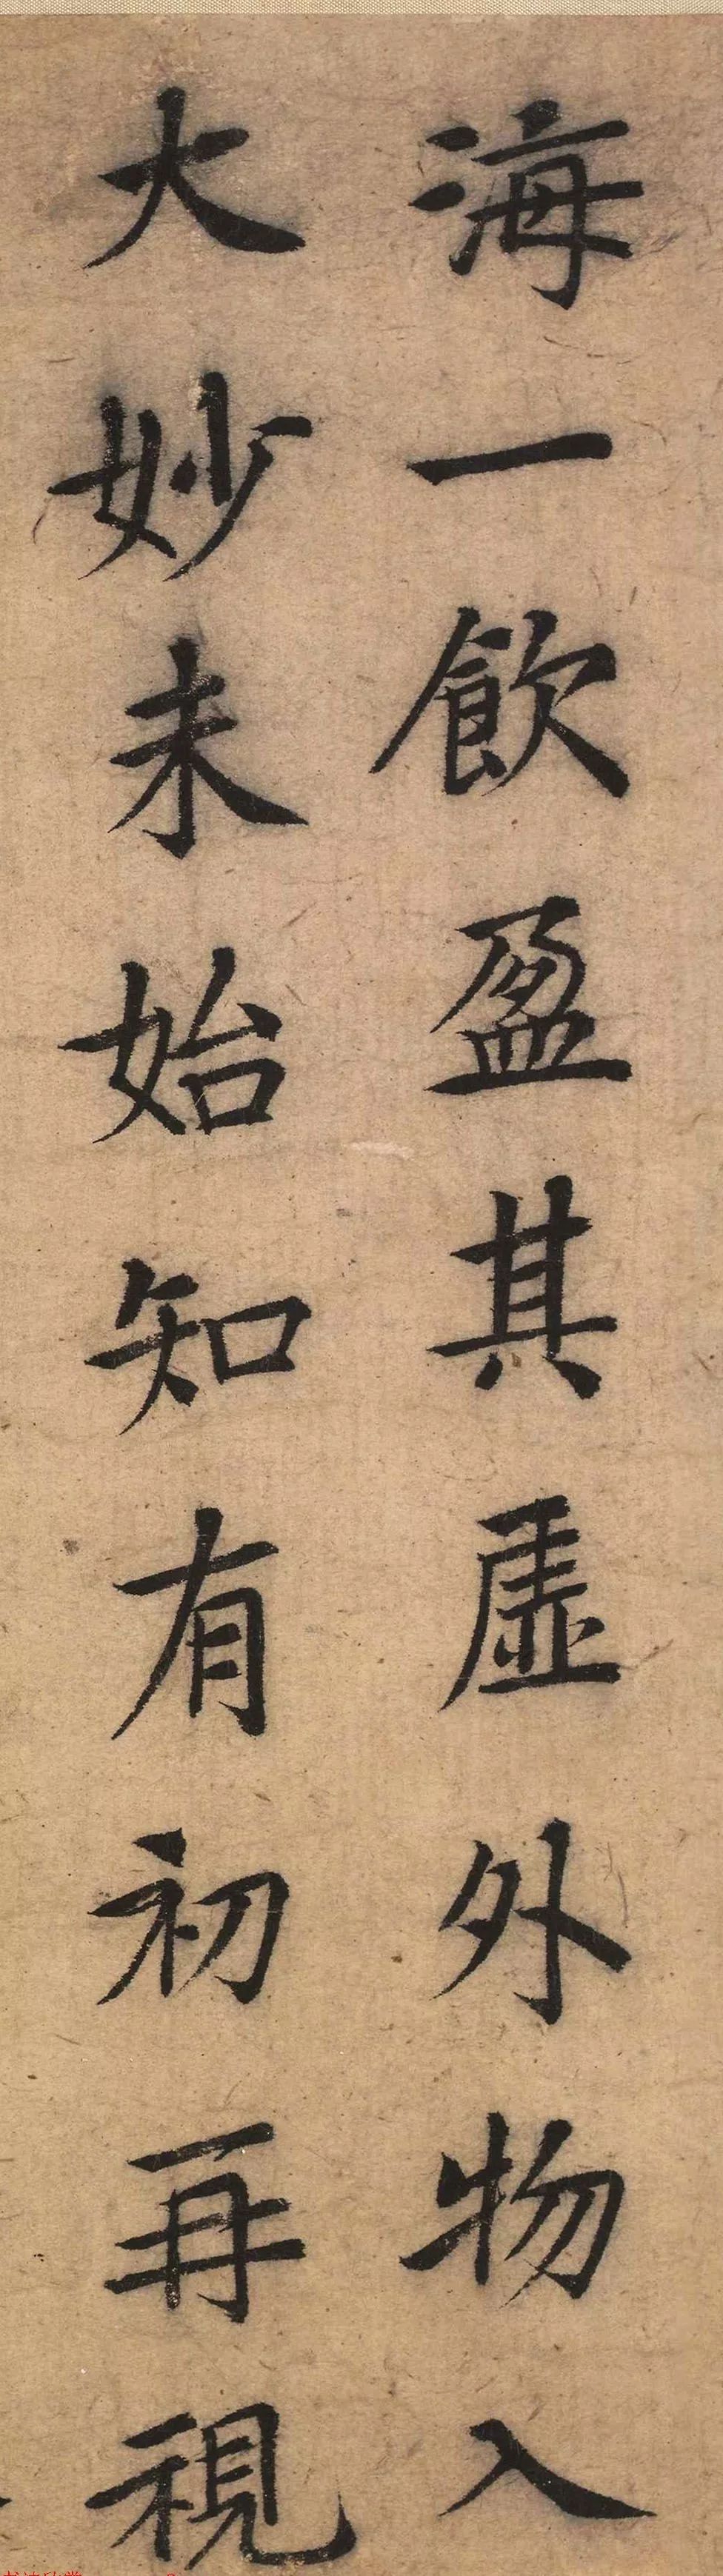 海一飲盈其虛外物入
大妙未始知有初再視